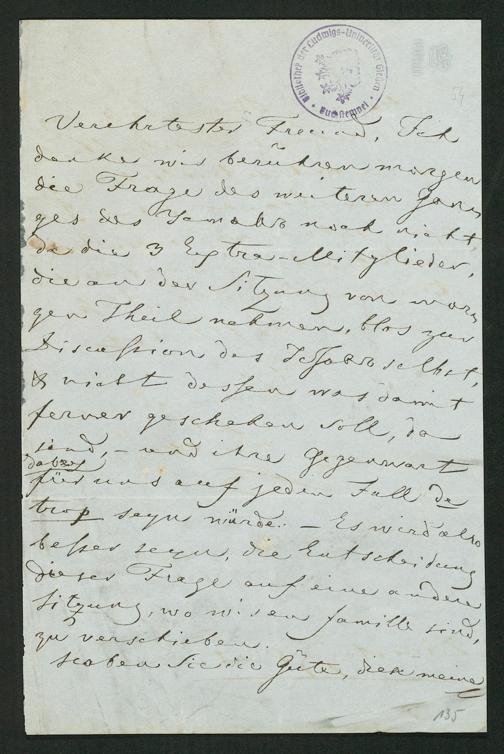 Bibliothek der Ludwigs-Universität Giessen
54
Verehrtester Freund, Ich
denke wir berühren morgen
die Frage des weiteren Gan-
ges des noch nicht
da die 3 Extra-Mitglieder,
die an der Sitzung von mor-
gen Theil nehmen, blos zur
Discussion des selbst,
& nicht dessen was damit
ferner geschehen soll, da
sind, – und ihre Gegenwart
dabei
für uns auf jeden Fall de
trop seyn würde. – Es wird also
besser seyn, die Entscheidung
dieser Frage auf eine andere
Sitzung, wo wir en famille sind,
zu verschieben.
Haben Sie die Güte, diese meine
135